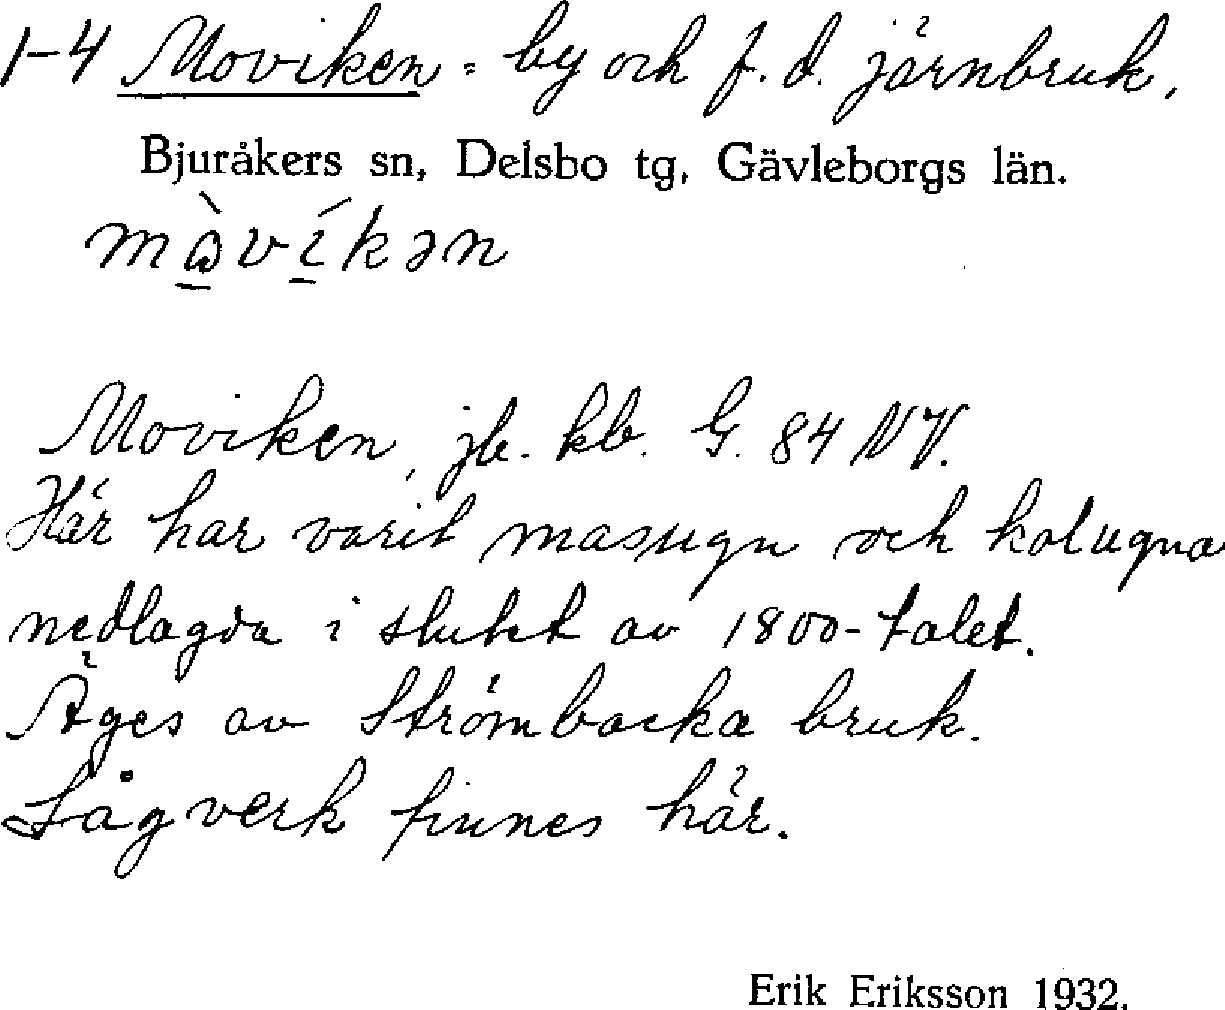 1-4 Moviken = by och f. d. järnbruk.
Bjuråkers sn, Delsbo tg, Gävleborgs län.
mὼ̲ví̲kən
Moviken, jb. kb. G. 84 NV.
Här har varit masugn och kolugnar
nedlagda i slutet av 1800-talet.
Äges av Strömbacka bruk.
Sågverk finnes här.
Erik Eriksson 1932.